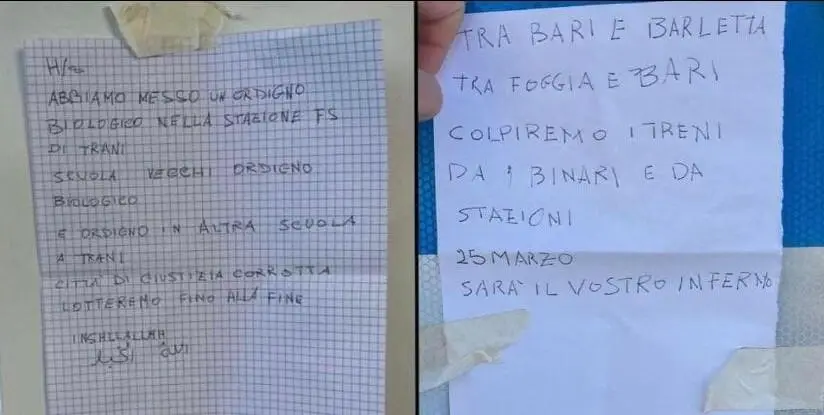 ABBIAMO MESSO UN ORDIGNO
BIOLOGICO NELLA STAZIONE FS
DI TRANI
SCUOLA VECCHI ORDIGNO
BIOLOGICO
E ORDIGNO IN ALTRA SCUOLA
A TRANI
CITTA' DI GIUSTIZIA CORROTTA
LOTTEREMO FINO ALLA FINE
INSHLLALLHH
TRA BARI E BARLETTA
TRA FOGGIA E BARI
COLPIREMO I TRENI
DA I BINARI E DA
STAZIONI
25 MARZO
SARA' IL VOSTRO INFERNO